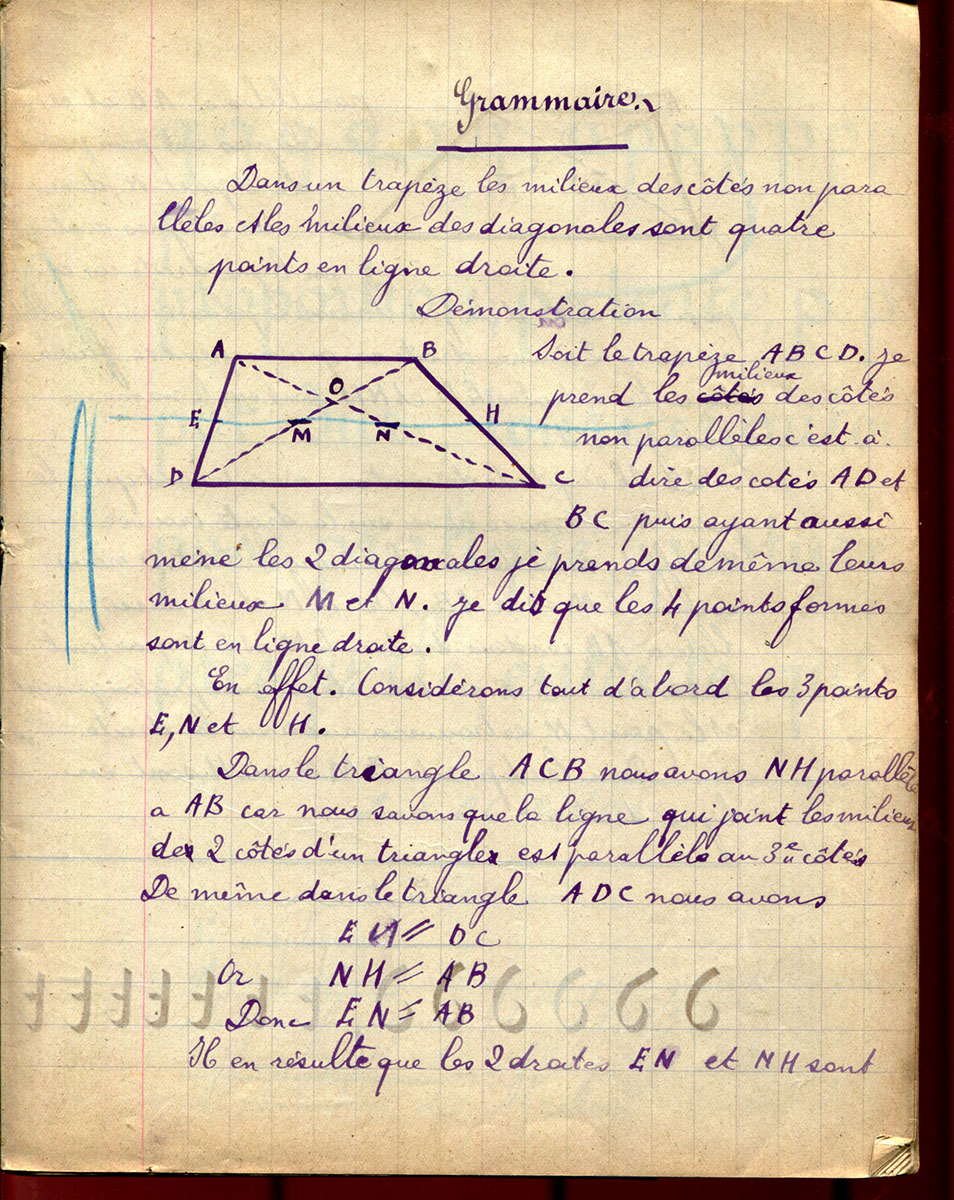 Grammaire.
Dans un trapèze les milieux des côtés non para
llèles et les milieux des diagonales sont quatre
points en ligne droite.
Démonstration
Soit le trapèze ABCD. je
milieux
prend les côtés des côtés
non parallèles c'est-à-
dire des cotés AD et
BC puis ayant aussi
A
B
O
E
M
N
H
D
C
mené les 2 diagonales je prends de même leurs
milieux M et N. je dis que les 4 points formés
sont en ligne droite.
En effet. Considérons tout d'abord les 3 points
E, N et H.
Dans le triangle ACB nous avons NH parallèle
a AB car nous savons que la ligne qui joint les milieux
de 2 côtés d'un triangle est parallèle au 3e côtés
De même dans le triangle ADC nous avons
EN // DC
Or NH // AB
Donc EN // AB
Il en résulte que les 2 droites EN et NH sont